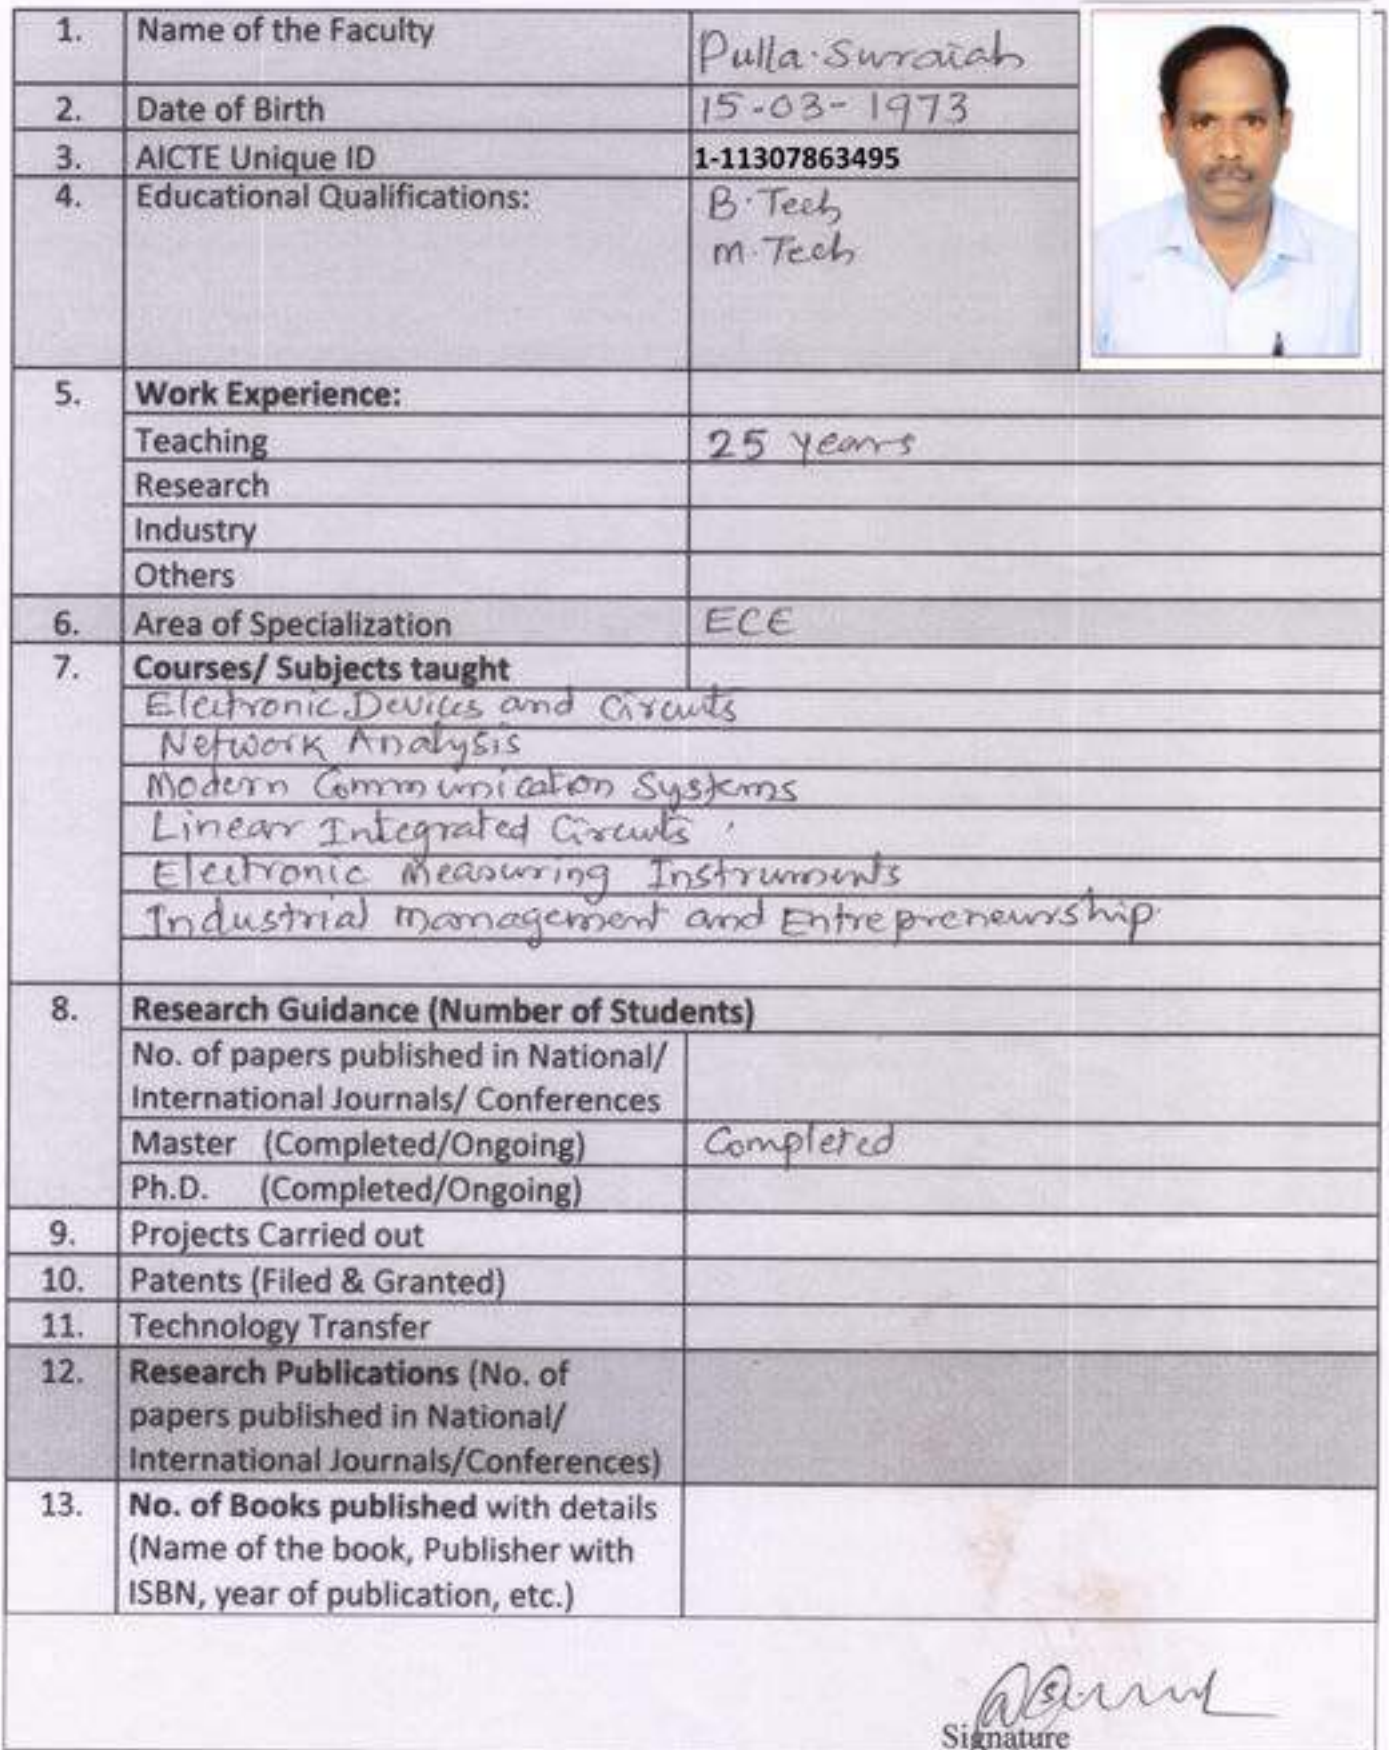 1. Name of the Faculty Pulla. Suraiah
2. Date of Birth 15-03-1973
3. AICTE Unique ID 1-11307863495
4. Educational Qualifications: B.Tech
M.Tech
5. Work Experience:
Teaching 25 years
Research
Industry
Others
6. Area of Specialization ECE
7. Courses/ Subjects taught
Electronic Devices and Circuits
Network Analysis
Modern Communication Systems
Linear Integrated Circuits
Electronic Measuring Instruments
Industrial Management and Entrepreneurship
8. Research Guidance (Number of Students)
No. of papers published in National/
International Journals/ Conferences
Master (Completed/Ongoing) Completed
Ph.D. (Completed/Ongoing)
9. Projects Carried out
10. Patents (Filed & Granted)
11. Technology Transfer
12. Research Publications (No. of
papers published in National/
International Journals/Conferences)
13. No. of Books published with details
(Name of the book, Publisher with
ISBN, year of publication, etc.)
Signature